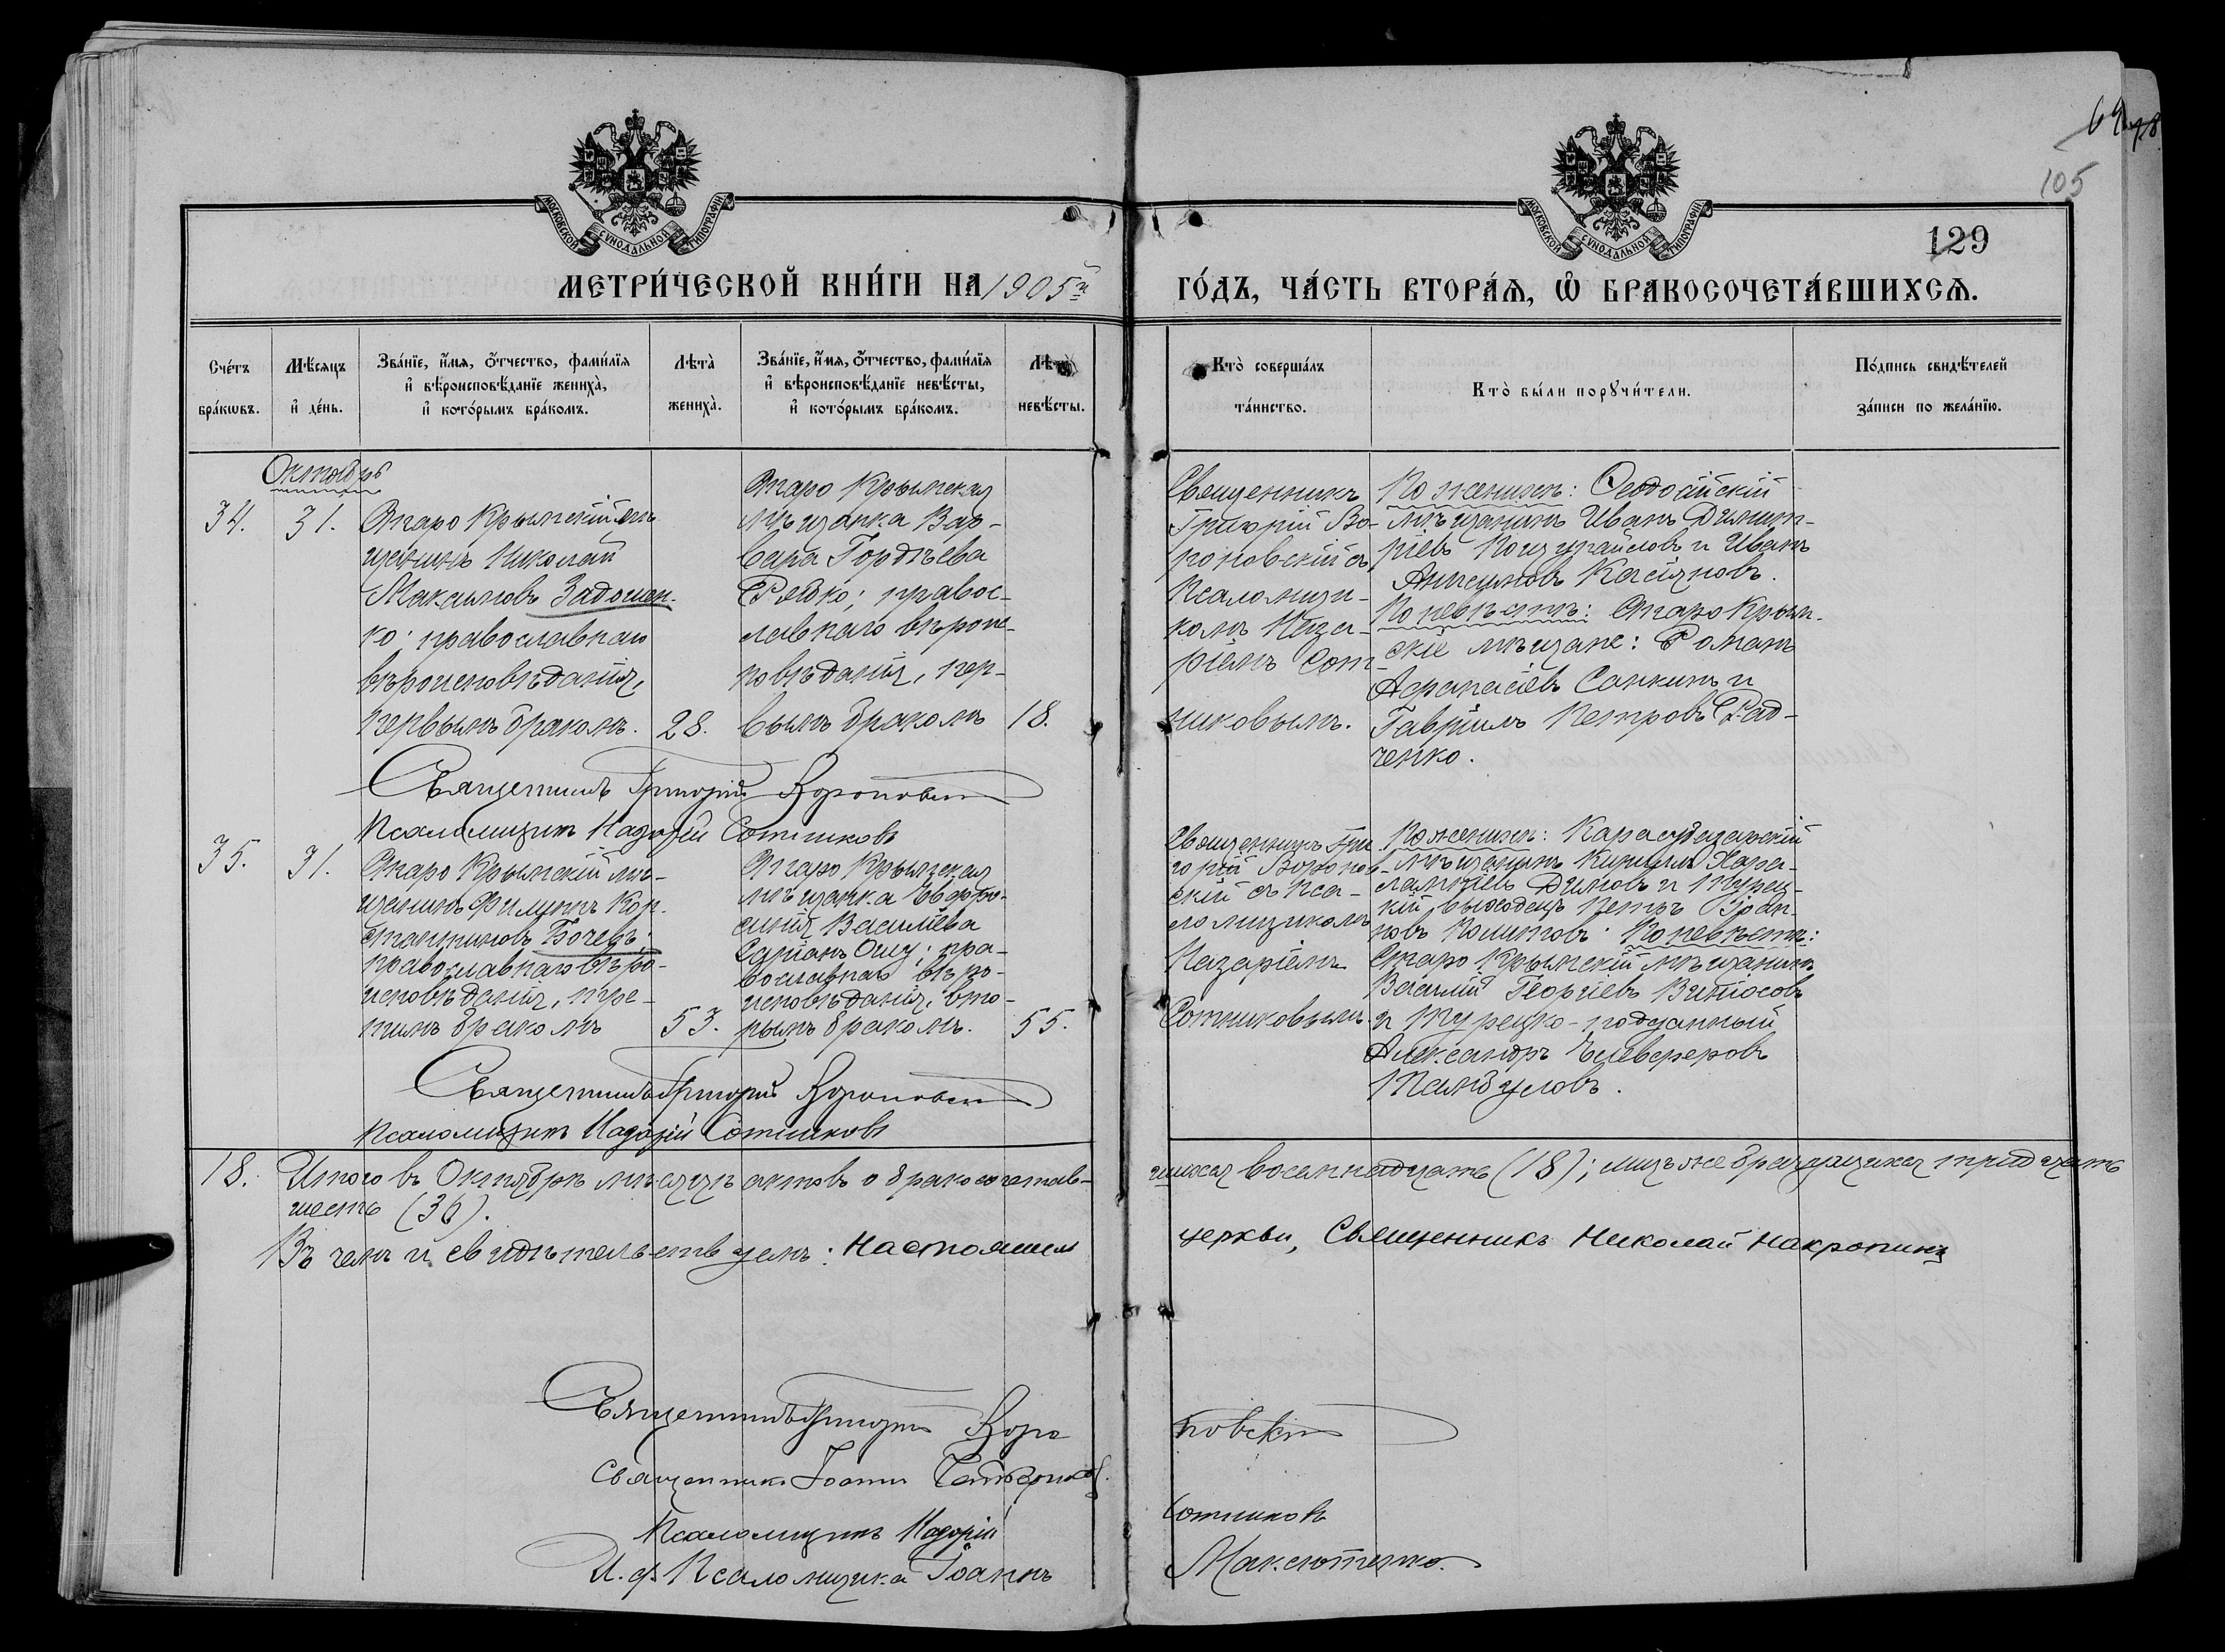 105
129
МОСКОВСКОЙ СУНОДАЛЬНОЙ ТИПОГРАФІИ
МОСКОВСКОЙ СУНОДАЛЬНОЙ ТИПОГРАФІИ
МЕТРИ́ЧЕСКОЙ КНИ́ГИ НА 1905й
ГО́ДЪ, ЧА́СТЬ ВТОРА́Ѧ, Ѡ҆ БРАКОСОЧЕТА́ВШИХСѦ.
Сче́тъ
бра́кѡвъ.
Мѣ́сяцъ
и҆ де́нь.
Зва́нїе, и҆́мѧ, ѻ҆́тчество, фами́лїѧ
и҆ вѣроисповѣ́данїе жениха̀,
и҆ кото́рымъ бра́комъ.
Лѣта̀
жениха̀.
Зва́нїе, и҆́мѧ, ѻ҆́тчество, фами́лїѧ
и҆ вѣроисповѣ́данїе невѣ́сты,
и҆ кото́рымъ бра́комъ.
невѣ́сты.
Кто̀ соверша́лъ
та́инство.
Кто̀ бы́ли порꙋчи́тели.
По́дпись свидѣ́телей
за́писи по жела́нїю.
Октябрь
34.
31.
Старо Крымскій мѣ-
щанинъ Николай
Максимовъ Задоен-
ко; православнаго
вѣроисповѣданія,
первымъ бракомъ.
28.
Старо Крымская
мѣщанка Вар-
вара Гордѣева
Редко; правос-
лавнаго вѣроис-
повѣданія, пер-
вымъ бракомъ
18.
Священникъ
Григорій Во-
роновскій съ
Псаломщи-
комъ Наза-
ріемъ Сот-
никовымъ.
По женихѣ: Ѳеодосійскій
мѣщанинъ Иванъ Димит-
ріевъ и Иванъ
Касіяновъ.
По невѣстѣ: Старо Крым-
скіе мѣщане: Романъ
Афанасіевъ Санкинъ и
Гавріилъ Петровъ Рад-
ченко.
Священникъ Григорій Вороновскій
Псаломщикъ Назарій Сотниковъ
35.
31.
Старо Крымскій мѣ-
щанинъ Филиппъ Кон-
стантиновъ Бочевъ;
православнаго вѣро-
исповѣданія, тре-
тимъ бракомъ
53.
Старо Крымская
мѣщанка Евфро-
синія Васильева
пра-
вославнаго вѣро-
исповѣданія, вто-
рымъ бракомъ.
55.
Священникъ Гри-
горій Воронов-
скій съ Пса-
ломщикомъ
Назаріемъ
Сотниковымъ.
По женихѣ: Карасубазарскій
мѣщанинъ Кириллъ Хара-
лампіевъ Димовъ и Турец-
кій выходецъ Петръ
По невѣстѣ:
Старо Крымскій мѣщанинъ
Василій Георгіевъ
и Турецко-подданный
Александръ Елевферовъ
Священникъ Григорій Вороновскій
Псаломщикъ Назарій Сотниковъ
18. Итого въ Октябрѣ мѣсяцѣ актовъ о бракосочетав-
шихся восемнадцать (18); лицъ же брачущихся тридцать
шесть (36).
Въ чемъ и свидѣтельствуемъ: Настоятель
церкви, Священникъ Николай Накропинъ
Священникъ Григорій Воро
новскій
Священникъ Іоаннъ
Псаломщикъ Назарій
Сотниковъ
И. ф. Псаломщика Іоаннъ
Максютенко.